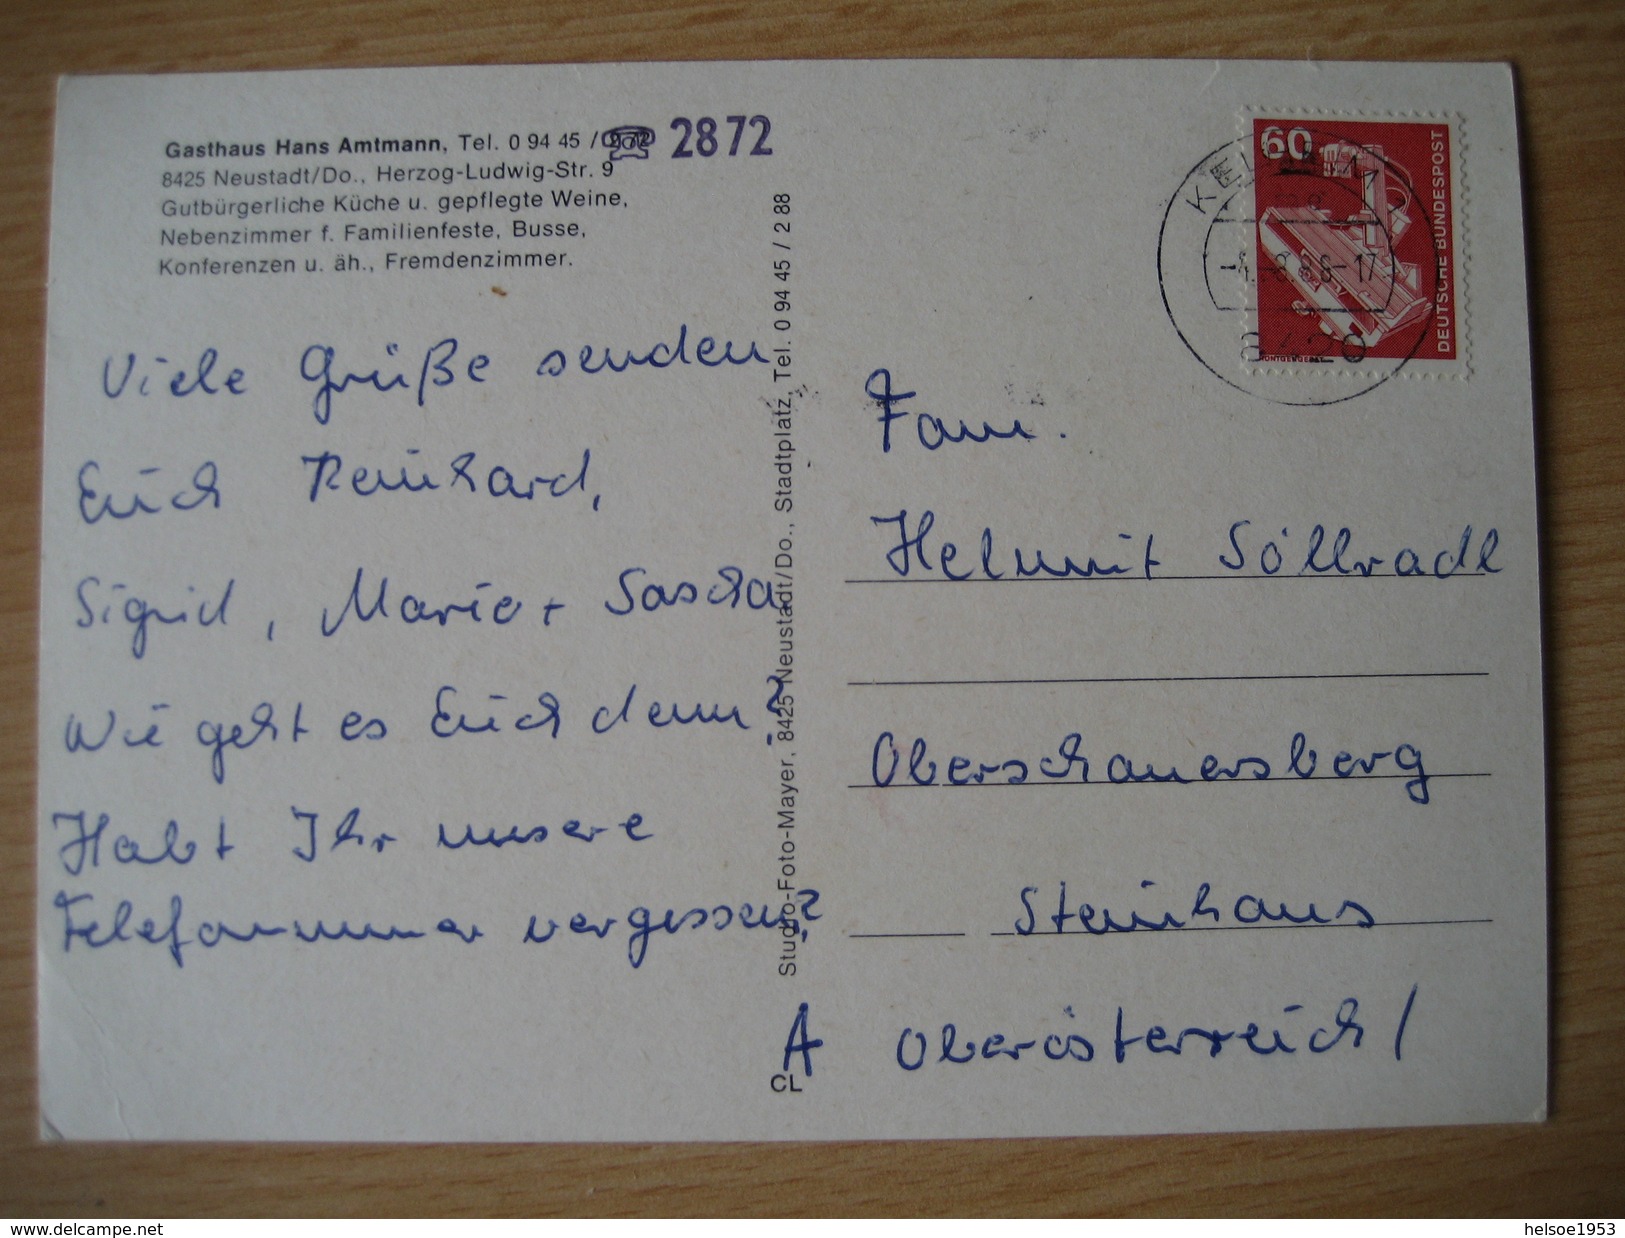 Gasthaus Hans Amtmann, Tel. 0 94 45 /
☎ 2872
8425 Neustadt/Do., Herzog-Ludwig-Str. 9
Gutbürgerliche Küche u. gepflegte Weine,
Nebenzimmer f. Familienfeste, Busse,
Konferenzen u. äh., Fremdenzimmer.
Viele Grüße senden
Euch Reinhard,
Sigrid, Mario + Sascha.
Wie geht es Euch denn?
Habt Ihr unsere
Telefonnummer vergessen?
Studio-Foto-Mayer, 8425 Neustadt/Do., Stadtplatz, Tel. 0 94 45 / 2 88
CL
60
DEUTSCHE BUNDESPOST
RÖNTGENGERÄT
8420
Fam.
Helmut Söllradl
Oberschauersberg
Steinhaus
A Oberösterreich/
www.delcampe.net
helsoe1953